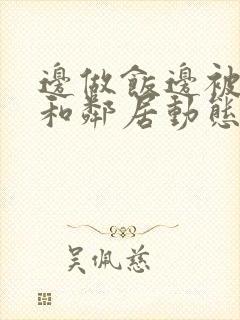 邊做飯邊被
和鄰居動態
吳佩慈